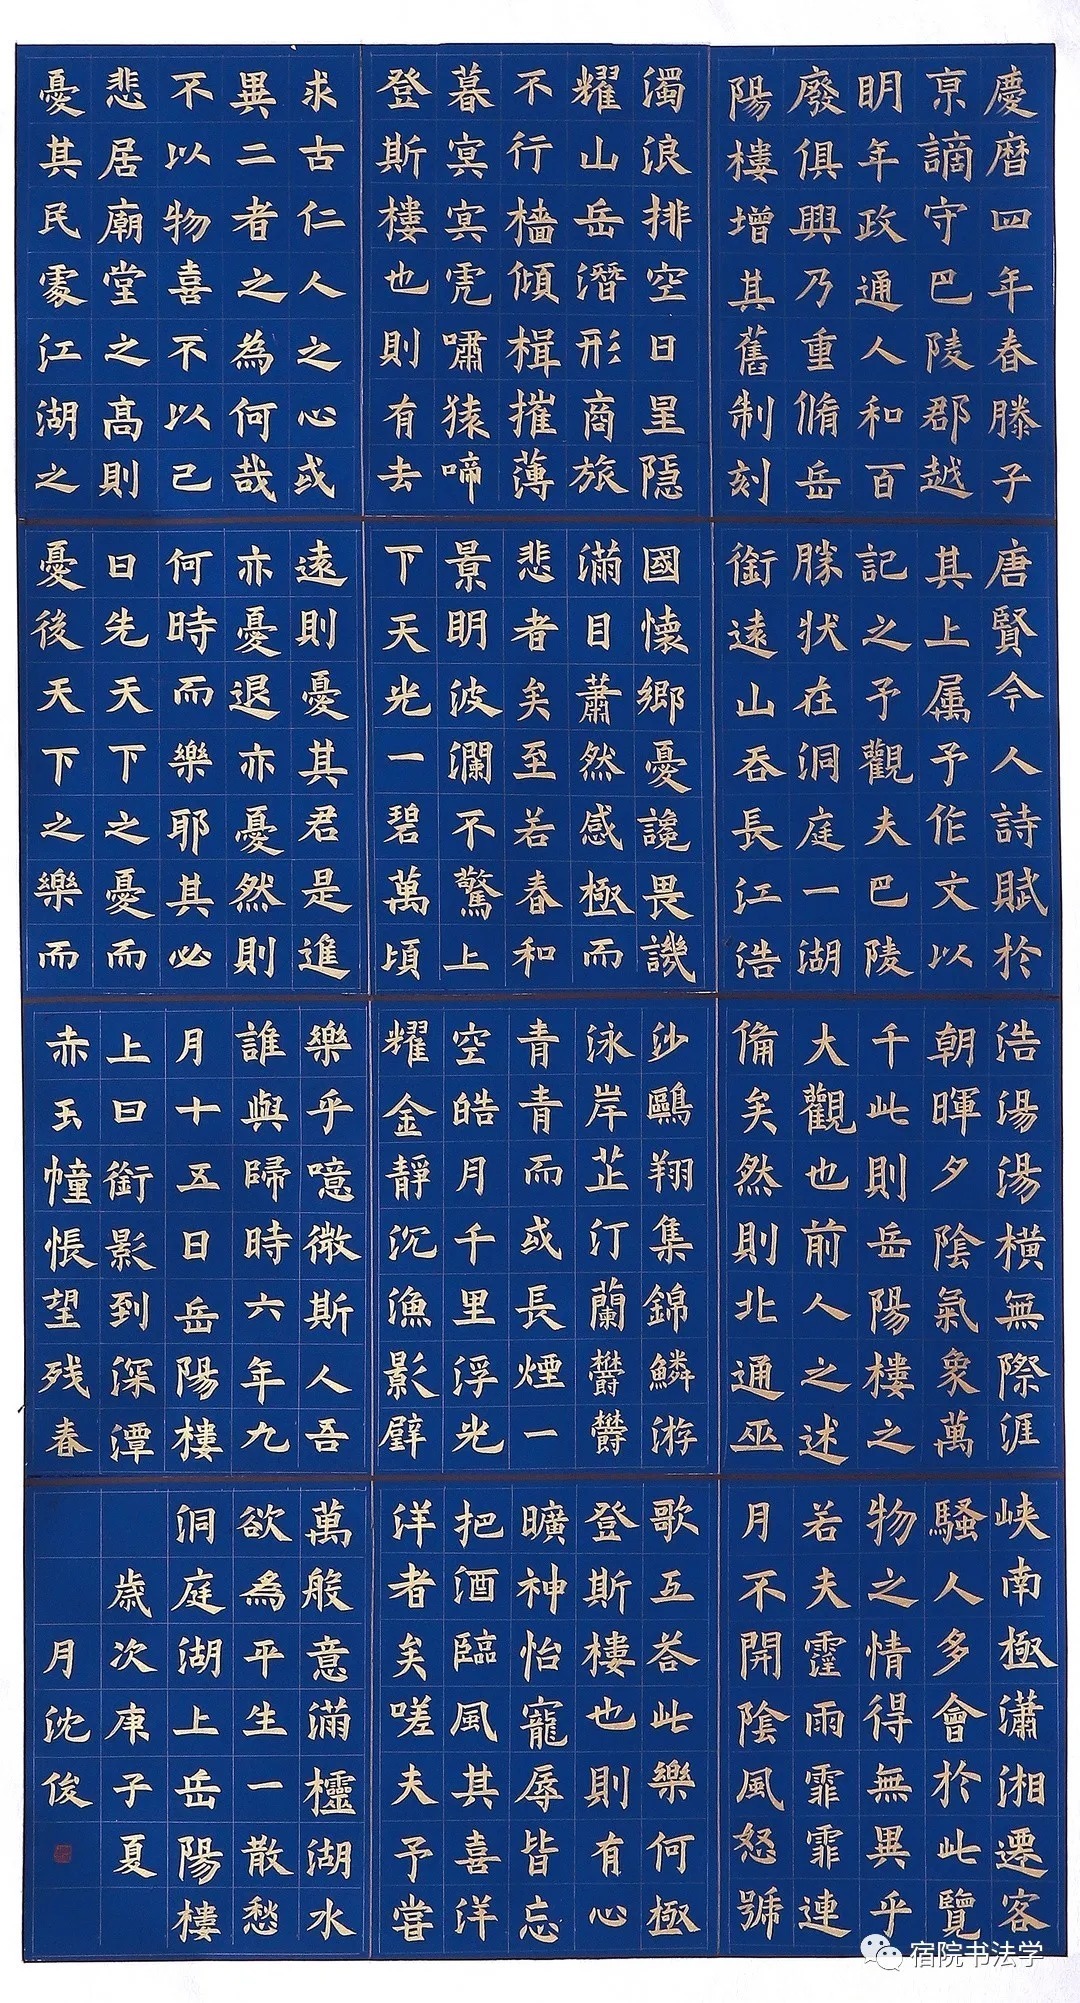 慶曆四年春滕子
京謫守巴陵郡越
明年政通人和百
廢俱興乃重脩岳
陽樓增其舊制刻
唐賢今人詩賦於
其上属予作文以
記之予觀夫巴陵
勝状在洞庭一湖
銜遠山吞長江浩
浩湯湯橫無際涯
朝暉夕陰氣象萬
千此則岳陽樓之
大觀也前人之述
備矣然則北通巫
峡南極瀟湘遷客
騷人多會於此覽
物之情得無異乎
若夫霪雨霏霏連
月不開陰風怒號
濁浪排空日星隱
耀山岳潛形商旅
不行檣傾楫摧薄
暮冥冥虎嘯猿啼
登斯樓也則有去
國懷鄉憂讒畏譏
滿目蕭然感極而
悲者矣至若春和
景明波瀾不驚上
下天光一碧萬頃
沙鷗翔集錦鱗游
泳岸芷汀蘭鬱鬱
青青而或長煙一
空皓月千里浮光
耀金靜沉漁影璧
歌互荅此樂何極
登斯樓也則有心
曠神怡寵辱皆忘
把酒臨風其喜洋
洋者矣嗟夫予嘗
求古仁人之心或
異二者之為何哉
不以物喜不以己
悲居廟堂之高則
憂其民處江湖之
遠則憂其君是進
亦憂退亦憂然則
何時而樂耶其必
曰先天下之憂而
憂後天下之樂而
樂乎噫微斯人吾
誰與歸時六年九
月十五日岳陽樓
上日銜影到深潭
赤玉幢悵望残春
萬般意滿櫺湖水
欲為平生一散愁
洞庭湖上岳陽樓
歲次庚子夏
月沈俊
宿院书法学